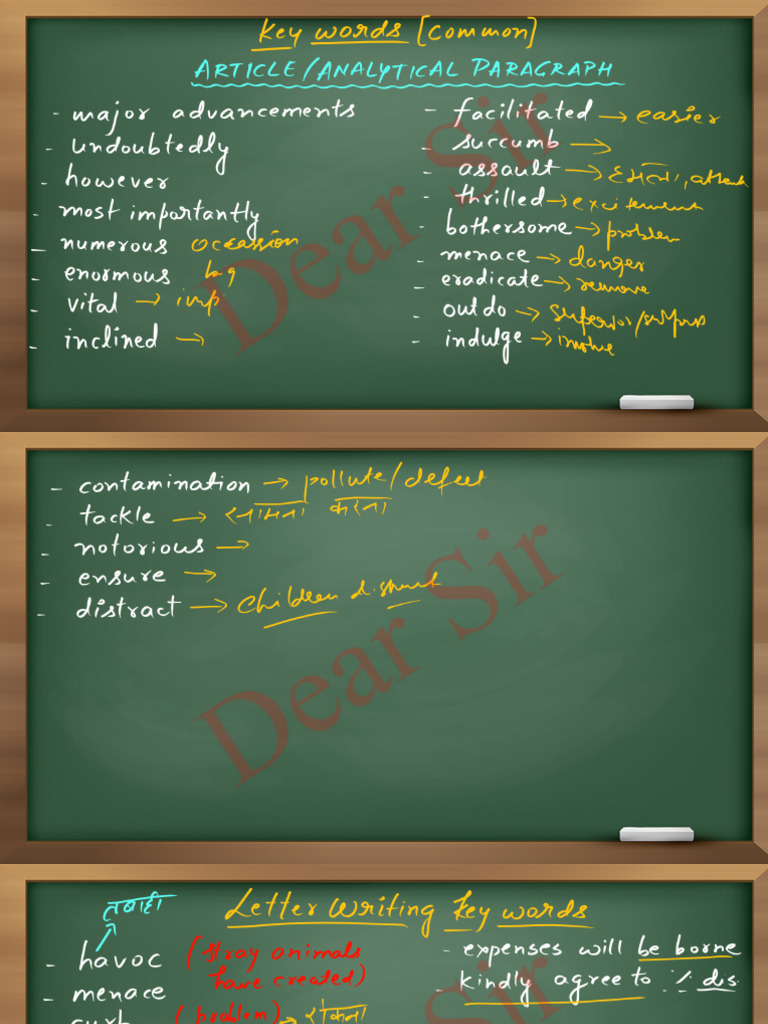 Key words [Common]
ARTICLE/ANALYTICAL PARAGRAPH
- major advancements
- undoubtedly
- however
- most importantly
- numerous occassion
- enormous big
- vital → imp
- inclined →
- facilitated → easier
- succumb →
- assault → हमला, attack
- thrilled → excitement
- bothersome → problem
- menace → danger
- eradicate → remove
- outdo → superior/surpass
- indulge → involve
Dear Sir
- contamination → pollute/defect
- tackle → सामना करना
- notorious →
- ensure →
- distract → children
Dear Sir
Letter Writing Key words
तबाही
- havoc (stray animals
have created)
- menace
curb (problem) → रोकना
- expenses will be borne
- kindly agree to % dis